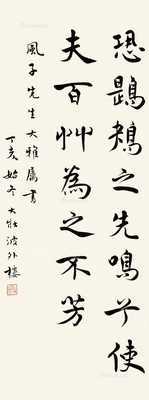 恐鶗鴂之先鳴兮使
夫百艸為之不芳
風子先生大雅屬書
丁亥始冬大壯波外樓